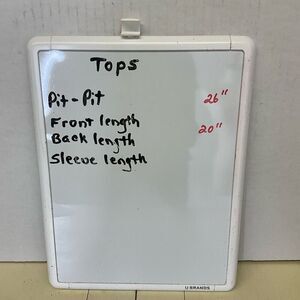 Tops
Pit-Pit 26"
Front length
20"
Back length
Sleeve length
U BRANDS